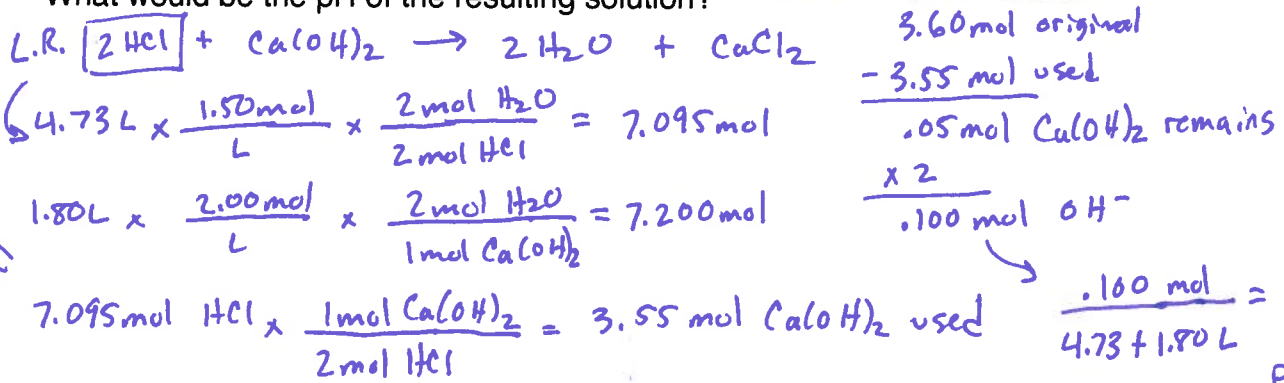 What would be the pH of the resulting solution?
L.R. 2 HCl + Ca(OH)2 → 2 H2O + CaCl2
4.73 L x 1.50 mol / L x 2 mol H2O / 2 mol HCl = 7.095 mol
1.80 L x 2.00 mol / L x 2 mol H2O / 1 mol Ca(OH)2 = 7.200 mol
7.095 mol HCl x 1 mol Ca(OH)2 / 2 mol HCl = 3.55 mol Ca(OH)2 used
3.60 mol original
- 3.55 mol used
.05 mol Ca(OH)2 remains
x 2
.100 mol OH-
.100 mol / 4.73 + 1.80 L =